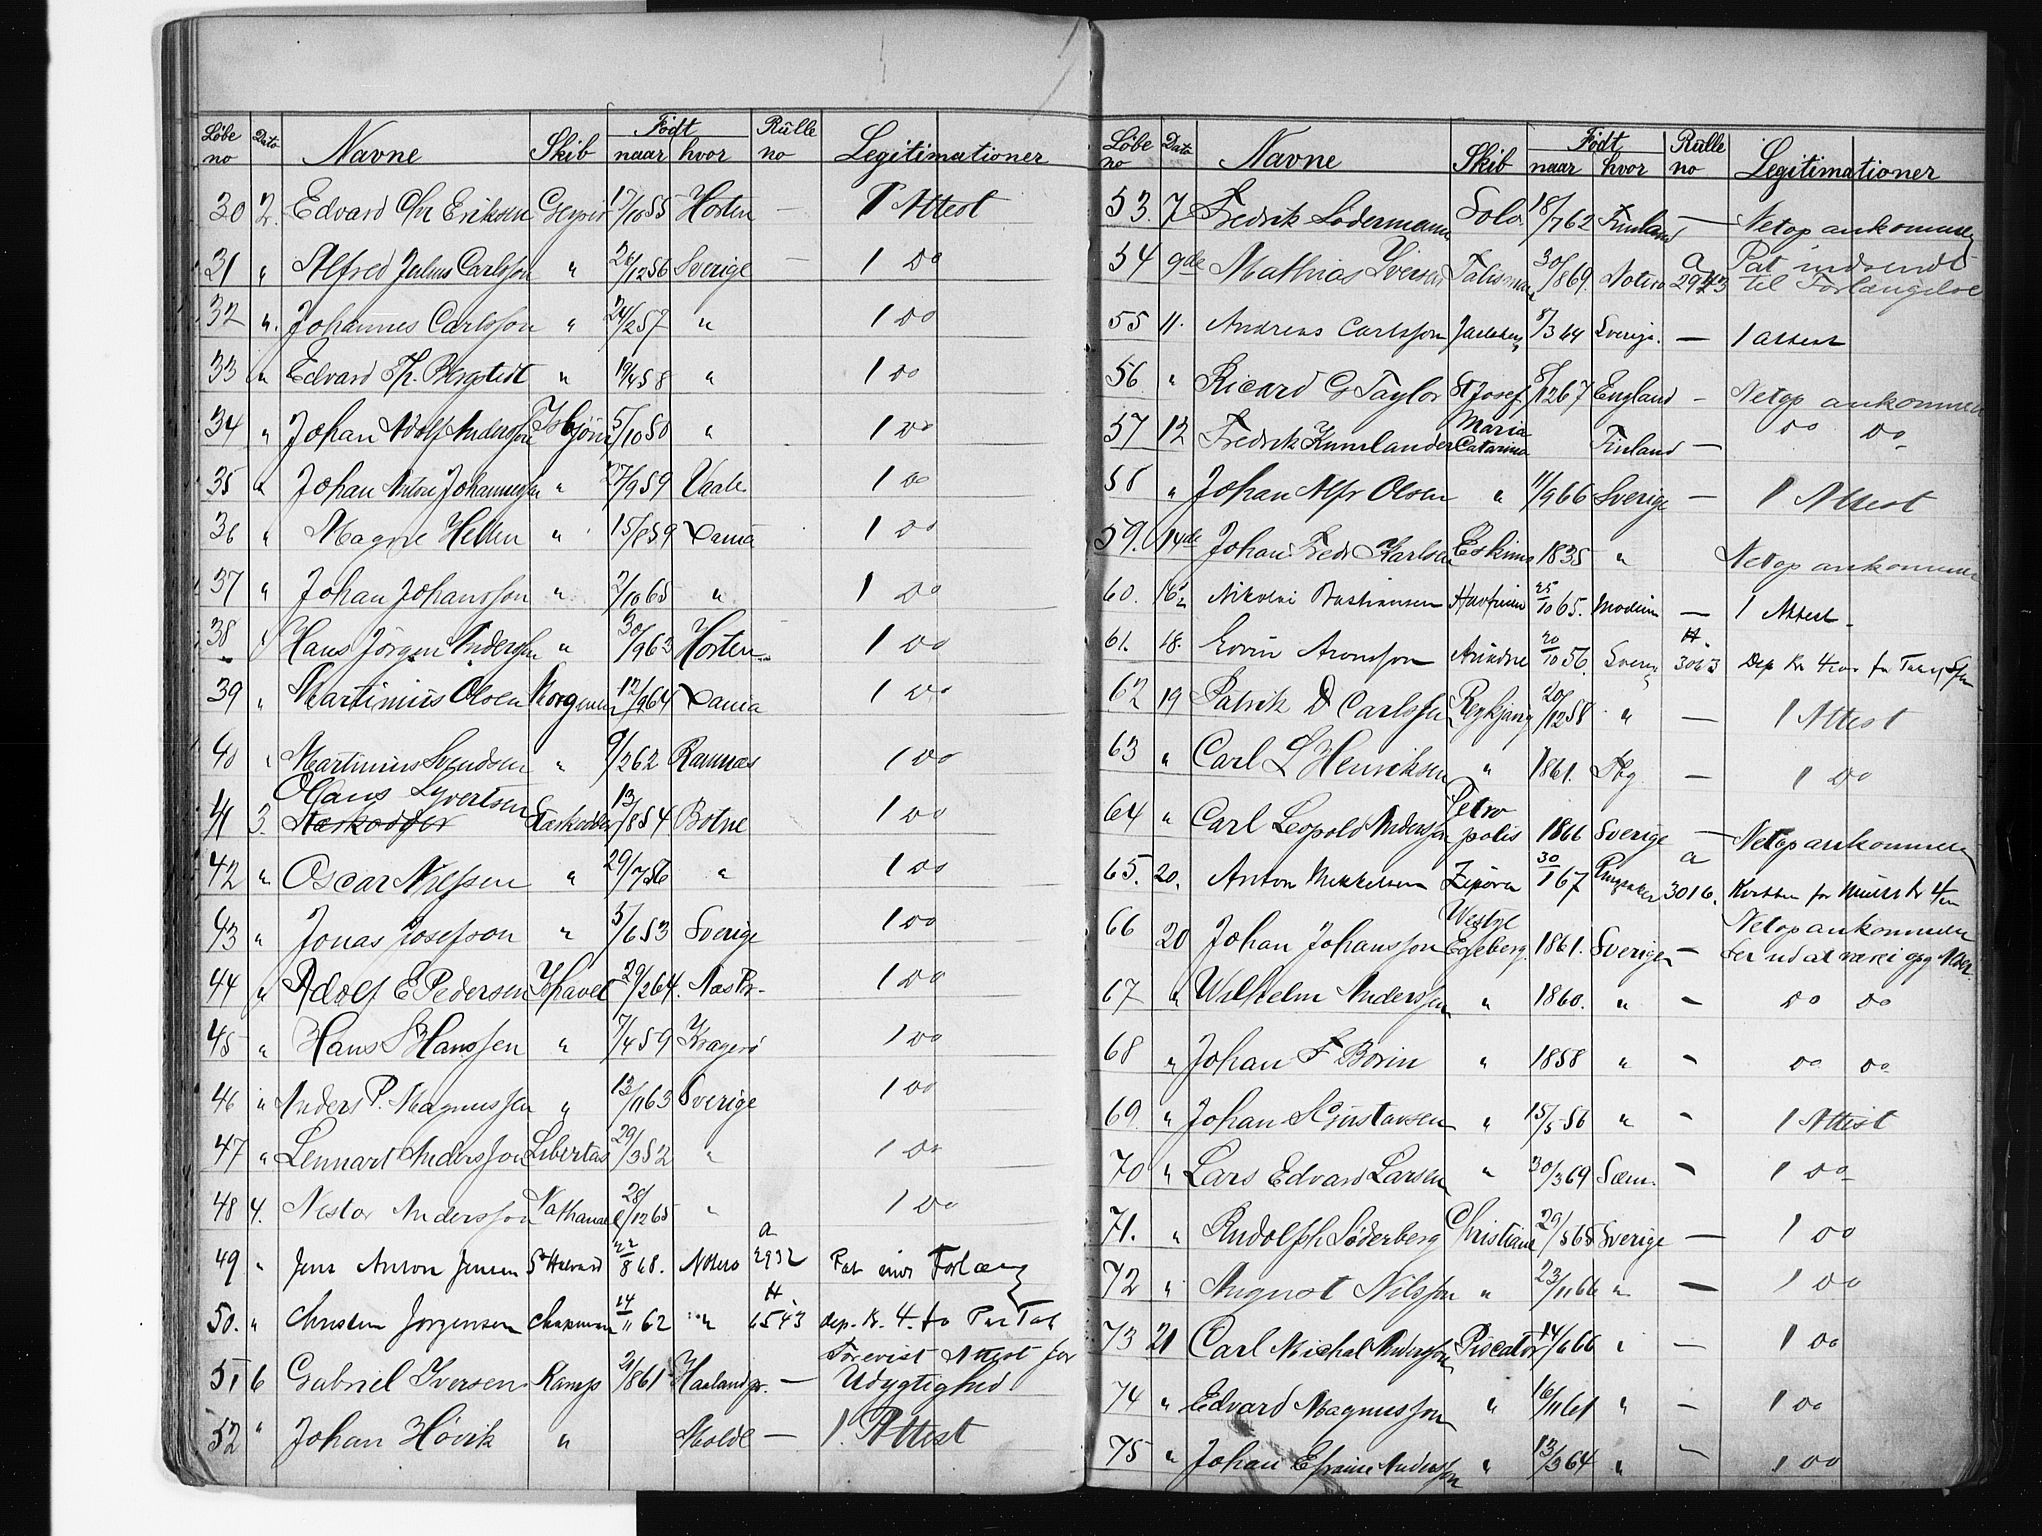 Løbe no Dato Navne Skib Født naar hvor Rulle no Legitimationer
30 2. Edvard Chr Eriksen 17/10 55 Horten — 1 Attest
31 " Alfred Julius Carlsson " 26/12 56 Sverige — 1 Do
32 " Johannes Carlsson " 24/2 57 " 1 Do
33 " Edvard Th. Bergstedt " 19/4 58 " 1 Do
34 " Johan Adolf Andersson Isbjörn 5/10 50 " 1 Do
35 " Johan Anton Johannessen " 27/9 59 Vaale 1 Do
36 " Magne Hellen " 15/8 59 1 Do
37 " Johan Johansson " 2/10 65 " 1 Do
38 " Hans Jörgen Andersen " 30/9 63 Horten 1 Do
39 " Martinius Olsen Morgenen 12/9 64 1 Do
40 " Martinius Svendsen " 9/2 62 Ramnæs 1 Do
41 3. Olaus Syvertsen Stærkodder 13/8 54 Botne 1 Do
42 " Oscar Nilssen " 29/7 56 " 1 Do
43 " Jonas Josefson " 5/6 53 Sverige 1 Do
44 " Adolf E Pedersen Ishavet 29/2 64. Næs Pr. 1 Do
45 " Hans S Hanssen " 7/4 59 Kragerö 1 Do
46 " Anders P. Magnussen " 13/11 63 Sverige 1 Do
47 " Lennart Andersson Libertas 29/3 52 " 1 Do
48 4. Nestor Andersson Nathanael 28/12 65 " 1 Do
49 " Jens Anton Jensen St Halvard 22/8 68. Nøtterø a 2932 Pat inds Forlæng
50. " Christen Jorgensen Chapman 14/11 62 " H 6543 dep. Kr. 4. fo Pat Tab
51 6 Gabriel Iversen Kamp 21/8 61 Haaland pr. — Forevist Attest for Udygtighed
52 " Johan Hövik " Molde — 1. Attest
Løbe no Dato Navne Skib Født naar hvor Rulle no Legitimationer
53. 7 Fredrik Lodermann Solo. 18/7 62 Finland — Netop ankommen
54 9de Mathias Iversen Talisman 30/8 69. Notero a 2943 Pat indsendt til Forlængelse
55 11. Andreas Carlsson Jarlsberg 5/3 64 Sverige. — 1 Attest
56 " Ricard G Taylor St Josef 8/12 67 England — Netop ankommen
57 12 Fredrik Kumlander Maria Catarina Finland — Do Do
58 " Johan Alfr Olsen " 11/9 66 Sverige — 1 Attest
59. 14de Johan Fredr Karlsen Eskimo 1835 " Netop ankommen
60. 16 Nikolai Bastiansen Havfruen 25/10 65. Modum — 1 Attest
61. 18. Aronsson Ariadne 20/10 56. Sverig H 3063 Dep Kr 4
62 19 Patrik D Carlssen Reykjavig 20/12 58 " — 1 Attest
63 " Carl L Henriksen " 1861. Tbg — 1 Do
64 " Carl Leopold Andersson Petropolis 1866 Sverige — Netop ankommen
65. 20. Anton Mikkelsen 30/1 67 Ringsaker a 3016. for Kr 4
66 20 Johan Johansson Westye Egeberg 1861. Sverige — Netop ankommen
67 " Wilhelm Andersson " 1860. " — Do Do
68 " Johan F Borin " 1858 " — Do Do
69. " Johan S Gustavsen " 15/5 56 " — 1 Attest
70 " Lars Edvard Larsen " 30/3 69 Sæm. — 1 Do
71. " Rudolfh Söderberg Christiane 29/5 65 Sverige — 1 Do
72 " August Nilsson " 23/11 66 " — 1 Do
73 21 Carl Michal Andersson Piscator 14/6 66 " — 1 Do
74 " Edvard Magnusson " 16/11 61 " — 1 Do
75 " Johan Efraim Andersson " 13/3 64 " — 1 Do